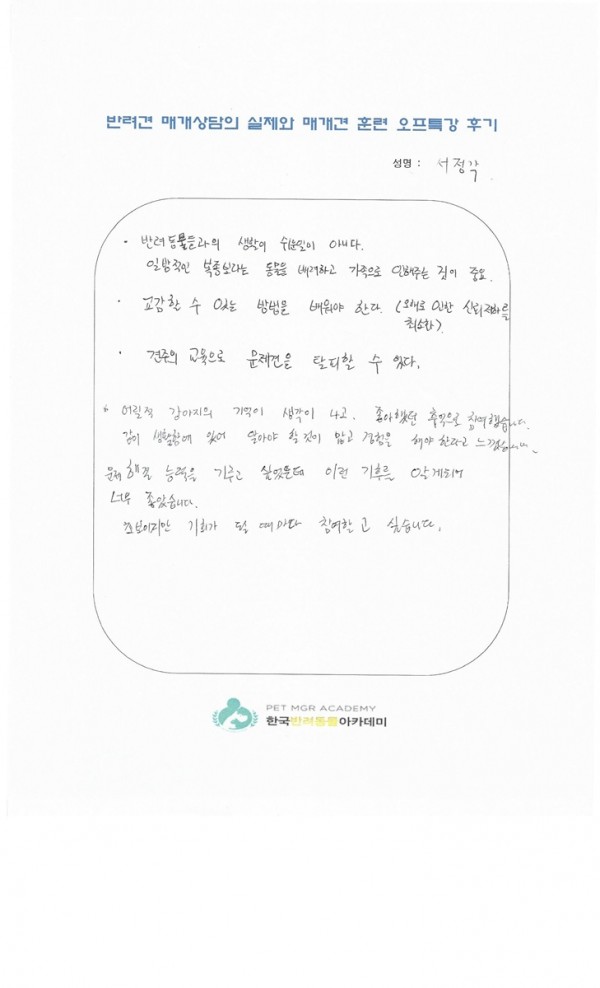 반려견 매개상담의 실제와 매개견 훈련 오프특강 후기
성명 : 서정각
· 반려동물들과의 생활이 쉬운일이 아니다.
일방적인 복종보다는 동물을 배려하고 가족으로 인정해주는 것이 중요.
· 교감할 수 있는 방법을 배워야 한다. (오해로 인한 신뢰저하를
최소화)
· 견주의 교육으로 문제견을 탈피할 수 있다.
* 어릴적 강아지의 기억이 생각이 나고, 좋아했던 추억으로 참여했습니다.
같이 생활함에 있어 알아야 할 것이 많고 경험을 해야 한다고 느꼈습니다.
문제 해결 능력을 키우고 싶었는데 이런 기회를 알게되어
너무 좋았습니다.
초보이지만 기회가 될 때마다 참여하고 싶습니다.
PET MGR ACADEMY
한국반려동물아카데미